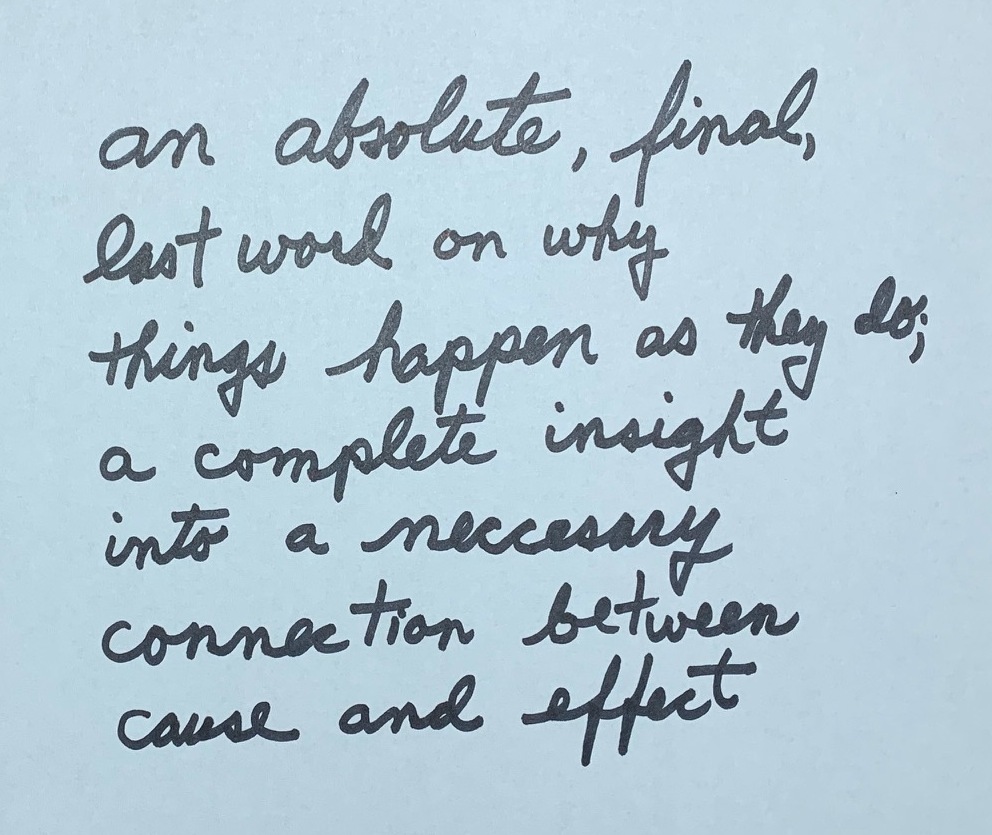 an absolute, final,
last word on why
things happen as they do;
a complete insight
into a neccesary
connection between
cause and effect